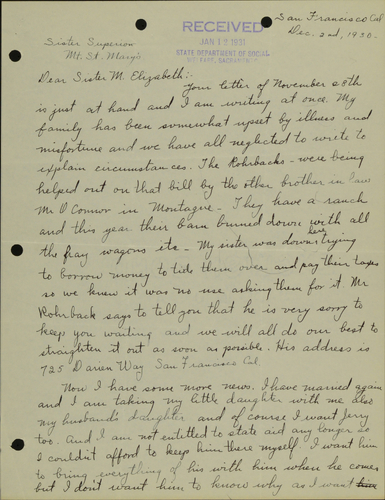 San Francisco Cal
Dec. 2nd, 1930-
RECEIVED
JAN 12 1931
STATE DEPARTMENT OF SOCIAL
WELFARE, SACRAMENTO
Sister Superior
Mt. St. Mary's
Dear Sister M. Elizabeth:-
Your letter of November 28th
is just at hand and I am writing at once. My
family has been somewhat upset by illness and
misfortune and we have all neglected to write to
explain circumstances. The Rohrbacks - were being
helped out on that bill by the other brother in laws
Mr O'Connor in Montague - They have a ranch
and this year their barn burned down with all
the hay wagons etc - My sister was down here trying
to borrow money to tide them over and pay their taxes
so we knew it was no use asking them for it. Mr
Rohrback says to tell you that he is very sorry to
keep you waiting and we will all do our best to
straighten it out as soon as possible. His address is
725 Darien Way San Francisco Cal.
Now I have some more news. I have married again
and I am taking my little daughter with me also
my husband's daughter and of course I want Jerry
too. And I am not entitled to state aid any longer so
I couldn't afford to keep him there myself. I want him
to bring everything of his with him when he comes
but I don't want him to know why as I want him